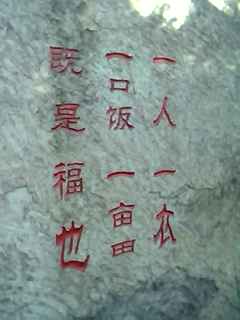 一人一衣
一口饭一亩田
既是福也